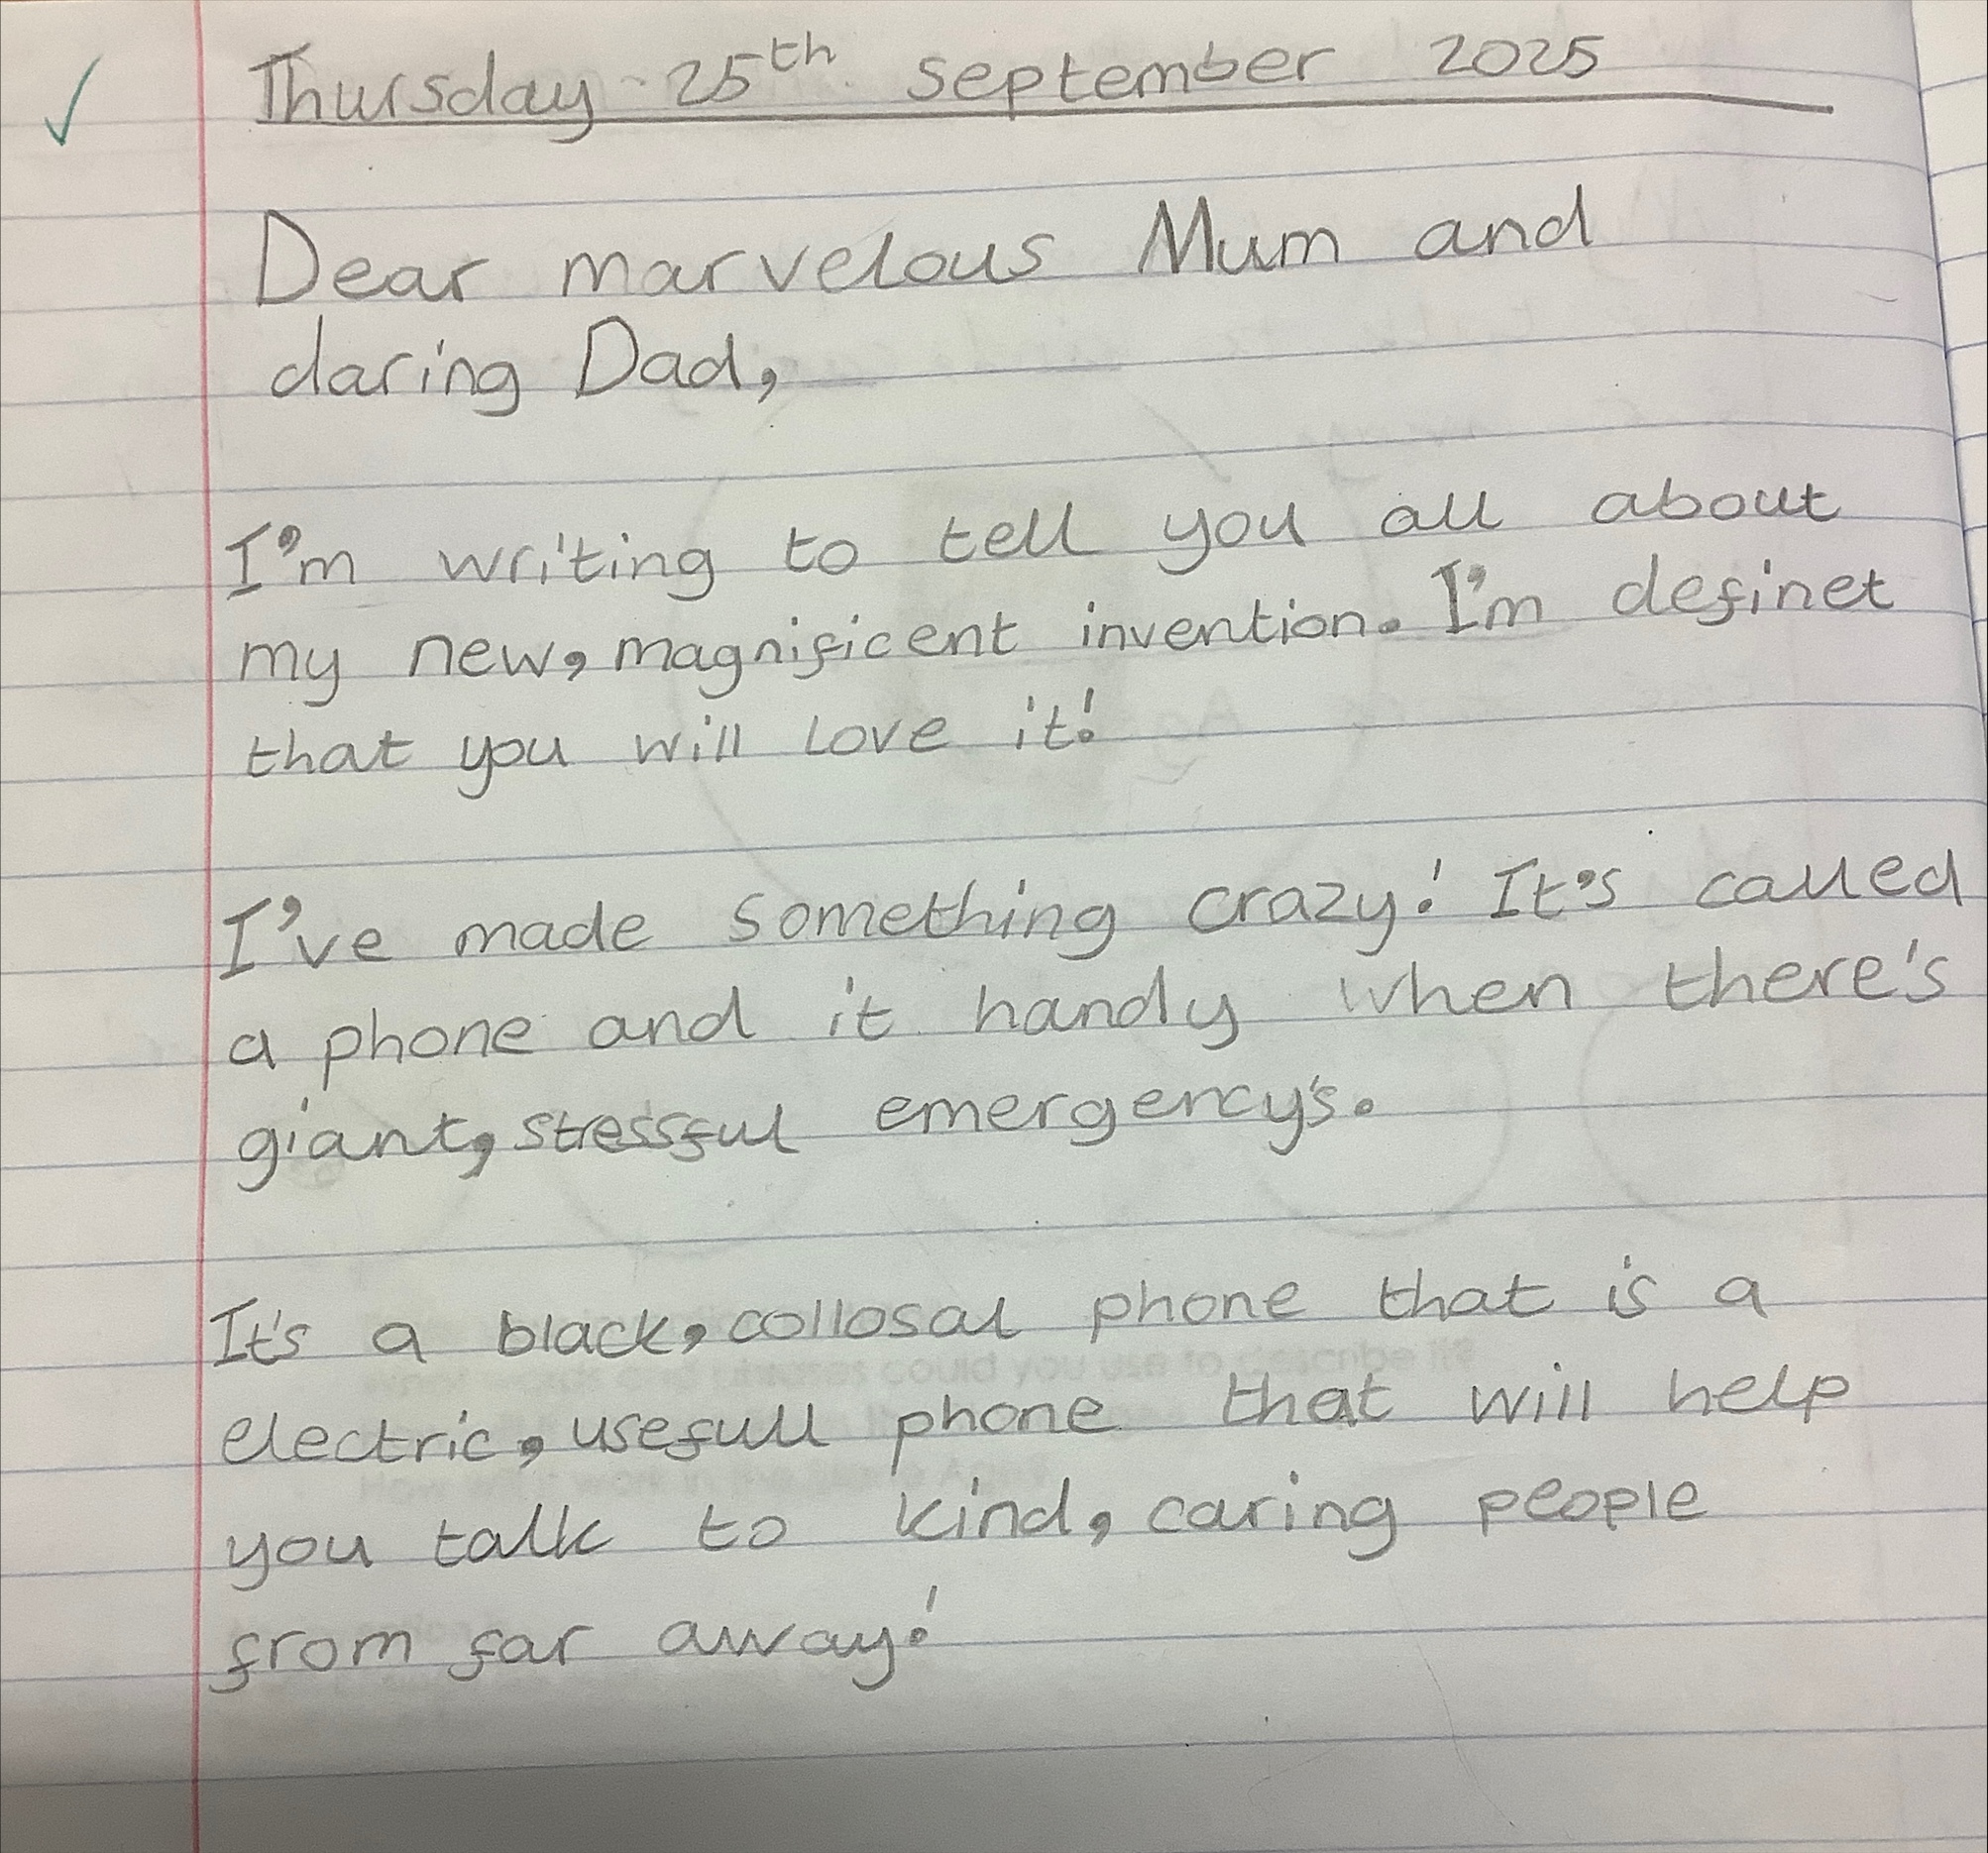 Thursday 25th September 2025
Dear marvelous Mum and
daring Dad,
I'm writing to tell you all about
my new, magnificent invention. I'm definet
that you will love it!
I've made something crazy! It's called
a phone and it handy when there's
giant, stressful emergency's.
It's a black, collosal phone that is a
electric, usefull phone that will help
you talk to kind, caring people
from far away!